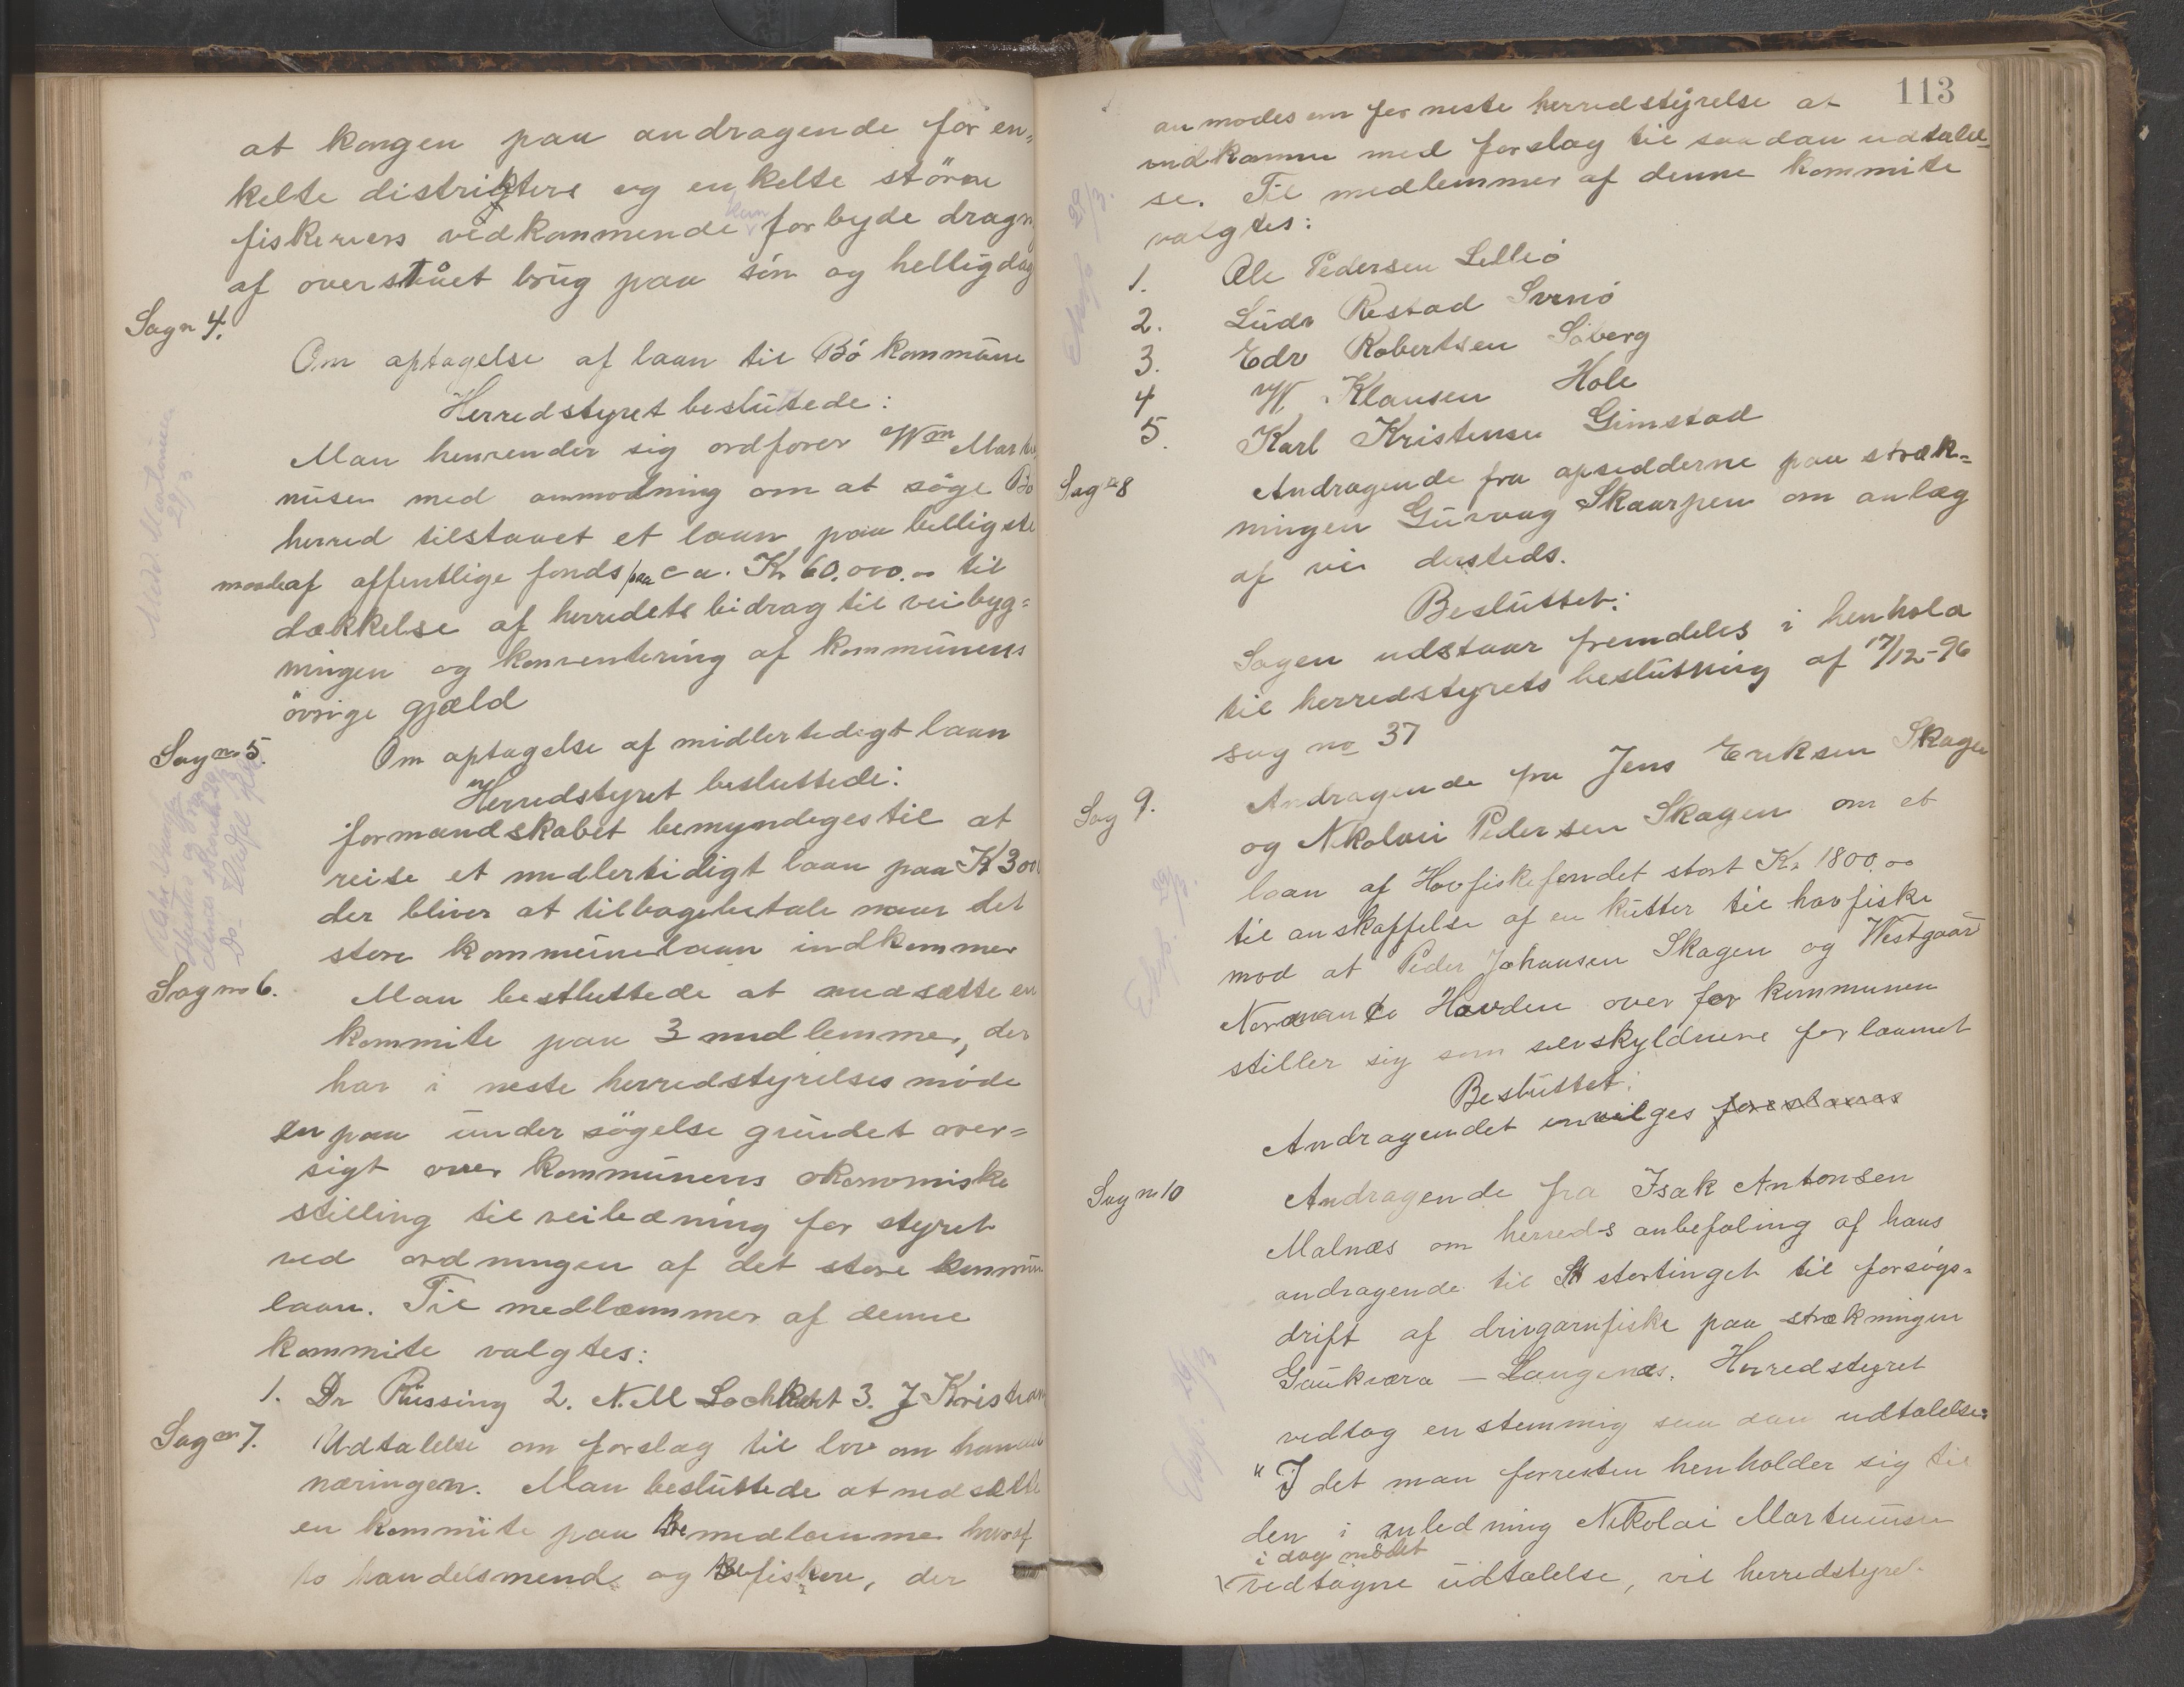 at kongen paa andragende for en„
kelte distrikters og enkelte større
fiskeriers vedkommende kun forbyde dragn
af overstaaet brug paa søn og helligdag
Sag n 4.
Om optagelse af laan til Bø kommune
Herredstyret besluttede:
Man henvender sig ordfører Wm Marti
nusen med anmodning om at søge Bø
herred tilstaaet et laan paa billigste
maade af offentlige fonds paa ca. Kr 60.000.00 til
dækkelse af herredets bidrag til veibyg=
ningen og konvertering af kommunens
øvrige gjæld
Sag no 5.
Om optagelse af midlertedigt laan
Herredstyret besluttede:
formandskabet bemyndiges til at
reise et midlertidigt laan paa Kr 3000
der bliver at tilbagebetale naar det
store kommunelaan indkommer
Sag no 6.
Man besluttede at nedsætte en
kommite paa 3 medlemmer, der
har i neste herredstyrelses møde
en paa under søgelse grundet over=
sigt over kommunens økonomiske
stilling til veiledning for styret
ved ordningen af det store kommun
laan. Til medlemmer af denne
kommite valgtes:
1. Dr Rüssing 2. N. M Lochkert 3. J Kristian
Sag no 7.
Udtalelse om forslag til lov om handels
næringen. Man besluttede at nedsætte
en kommite paa medlemmer hvoraf
to handelsmend og fiskere, der
113
anmodes om for neste herredstyrelse at
indkomme med forslag til saadan udtalel
se. Til medlemmer af denne kommite
valgtes:
1. Ole Pedersen Lellio
2. Ludv Restad Svinø
3. Edv Robertsen Søberg
4 W Klausen Hole
5. Karl Kristensen Gimstad
Sag no 8
Andragende fra opsidderne paa stræk=
ningen Guvaag Skaarpen om anlæg
af vei dersteds.
Besluttet:
Sagen udstaar fremdeles i henhold
til herredstyrets beslutning af 17/12-96
sag no 37
Sag 9.
Andragende fra Jens Eriksen Skagen
og Nikolai Pedersen Skagen om et
laan af Havfiskefondet stort Kr 1800.00
til anskaffelse af en kutter til havfiske
mod at Peder Johansen Skagen og Westgaar
Hovden over for kommunen
stiller sig som selvskyldnere for laanet
Besluttet:
Andragendet invilges
Sag no 10
Andragende fra Isak Antonsen
Malnæs om herreds anbefaling af hans
andragende til stortinget til forsøgs=
drift af drivgarnfiske paa strækningen
Gaukværø – Langenæs. Herredstyret
vedtog enstemmig saadan udtalelse:
"I det man forresten henholder sig til
den i anledning Nikolai Martinusen
i dag mødet
vedtagne udtalelse, vil herredstyret